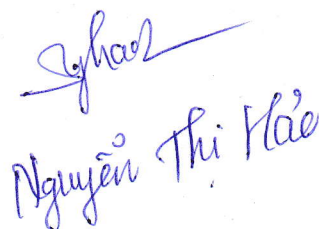 Nguyễn Thị Hảo